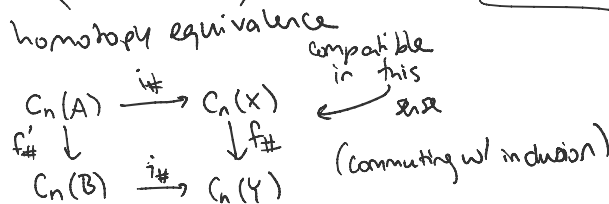 homotopy equivalence
compatible
in this
sense
C_n(A) i_# C_n(X)
f'_# f_#
(commuting w/ inclusion)
C_n(B) i_# C_n(Y)